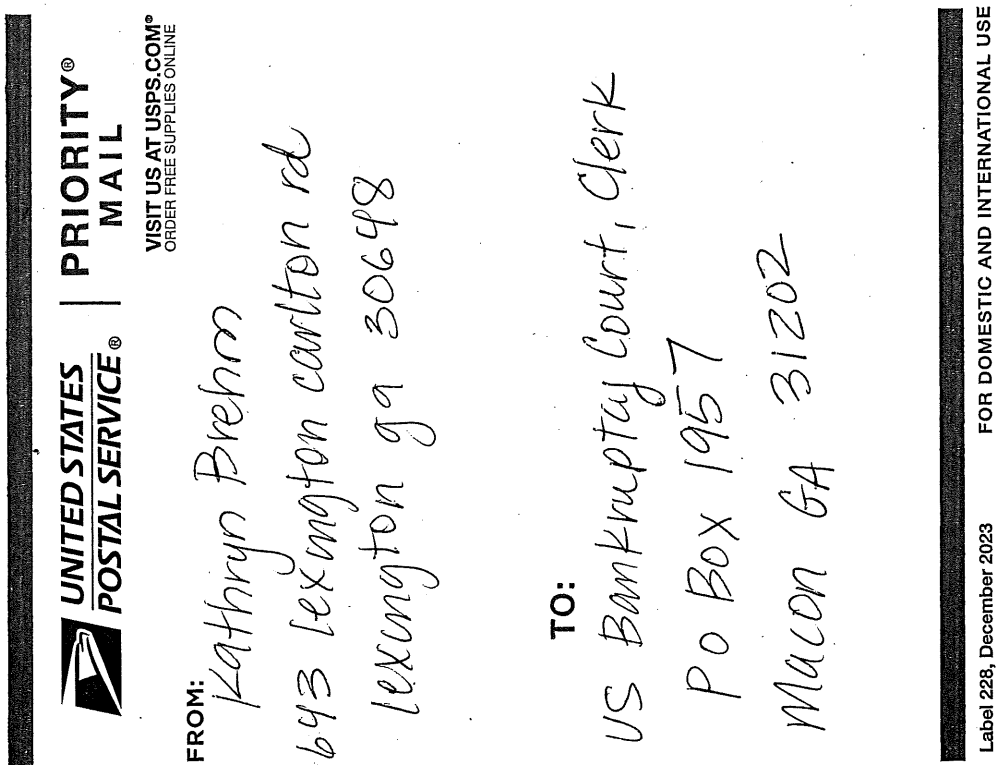 UNITED STATES POSTAL SERVICE®
PRIORITY® MAIL
VISIT US AT USPS.COM®
ORDER FREE SUPPLIES ONLINE
FROM:
Kathryn Brehm
643 Lexington carlton rd
Lexington ga 30648
TO:
US Bankruptcy Court, Clerk
PO Box 1957
Macon GA 31202
Label 228, December 2023
FOR DOMESTIC AND INTERNATIONAL USE